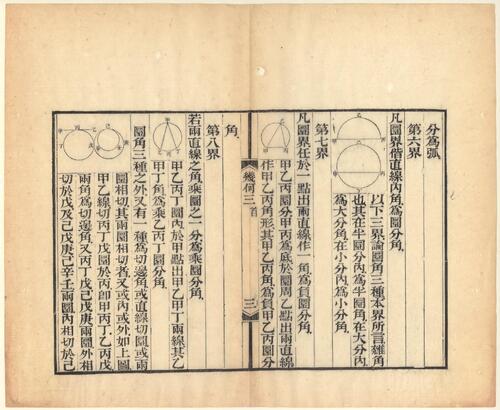 分為弧
第六界
凡圜界偕直線內角為圜分角
以下三界論圜角三種本界所言雜角
也其在半圜分內為半圜角在大分內
為大分角在小分內為小分角
第七界
凡圜界任於一點出兩直線作一角為負圜分角
甲乙丙圜分甲丙為底於圜周乙點出兩直線
作甲乙丙角形其甲乙丙角為負甲乙丙圜分
幾何三首 三
角
第八界
若兩直線之角乘圜之一分為乘圜分角
甲乙丙丁圜內於甲點出甲乙甲丁兩線其乙
甲丁角為乘乙丙丁圜分角
圜角三種之外又有一種為切邊角或直線切圜或兩
圜相切其兩圜相切者又或內或外如上圖
甲乙線切丙丁戊圜於丙即甲丙丁乙丙戊
兩角為切邊角又丙丁戊己戊庚兩圜外相
切於戊及己戊庚己辛壬兩圜內相切於己